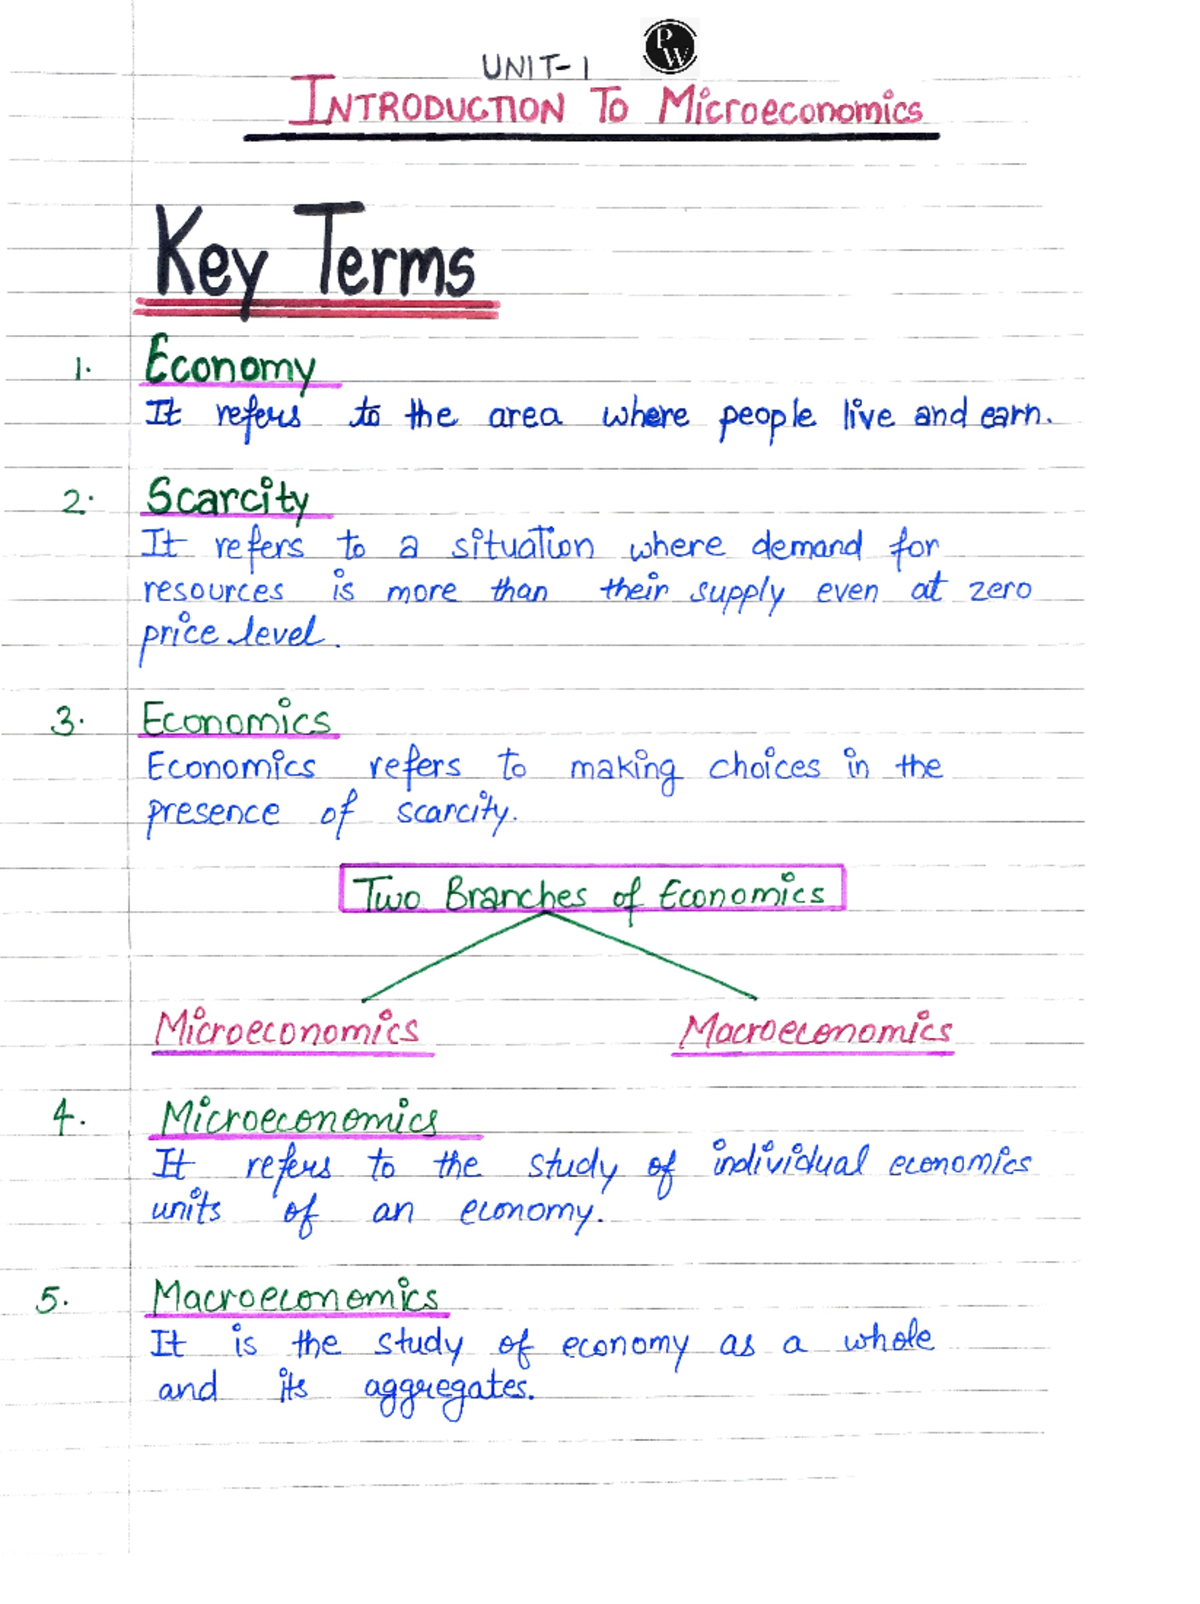 UNIT-1
PW
INTRODUCTION TO Microeconomics
Key Terms
1. Economy
It refers to the area where people live and earn.
2. Scarcity
It refers to a situation where demand for
resources is more than their supply even at zero
price level.
3. Economics
Economics refers to making choices in the
presence of scarcity.
Two Branches of Economics
Microeconomics Macroeconomics
4. Microeconomics
It refers to the study of individual economics
units of an economy.
5. Macroeconomics
It is the study of economy as a whole
and its aggregates.